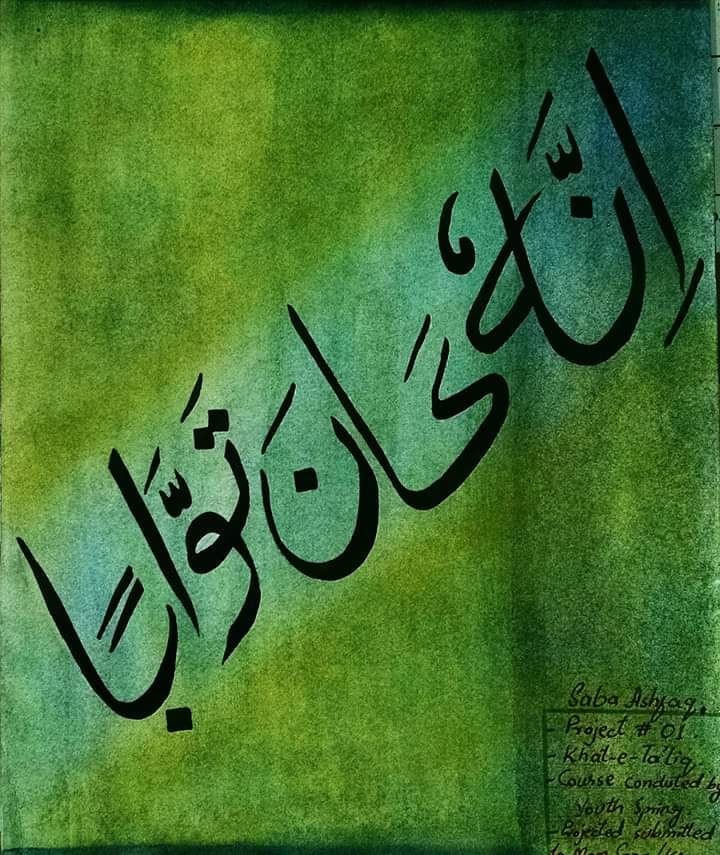 اِنَّهٗ كَانَ تَوَّابًا
Saba Ashfaq.
- Project # 01.
- Khat-e-Ta'liq
- Course conduted by
Youth Spring.
- Projected submitted